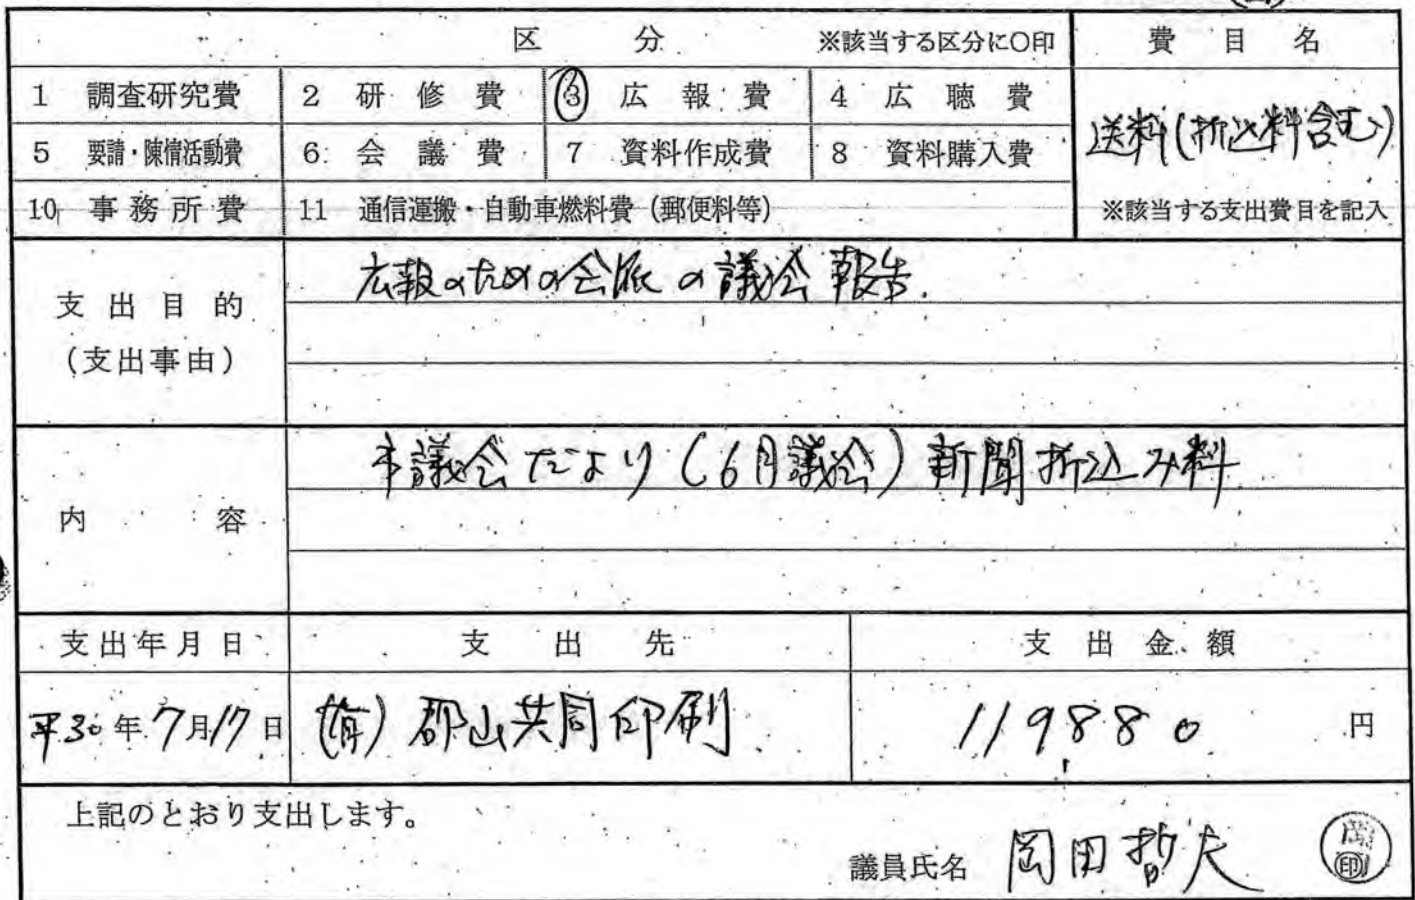 区 分 ※該当する区分に○印 費 目 名
1 調査研究費 2 研 修 費 ③ 広 報 費 4 広 聴 費
送料(折込料含む)
5 要請・陳情活動費 6 会 議 費 7 資料作成費 8 資料購入費
10 事 務 所 費 11 通信運搬・自動車燃料費(郵便料等) ※該当する支出費目を記入
広報のための会派の議会報告.
支 出 目 的
(支出事由)
市議会だより(6月議会)新聞折込み料
内 容
支出年月日 支 出 先 支 出 金 額
平30年7月17日 (有)郡山共同印刷 119,880 円
上記のとおり支出します。
議員氏名 岡田哲夫 ㊞